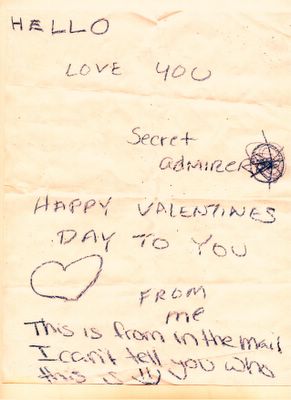 HELLO
LOVE YOU
Secret
ADMIRER
HAPPY VALENTINES
DAY TO YOU
FROM
me
This is from in the mail
I can't tell you who
this is !!